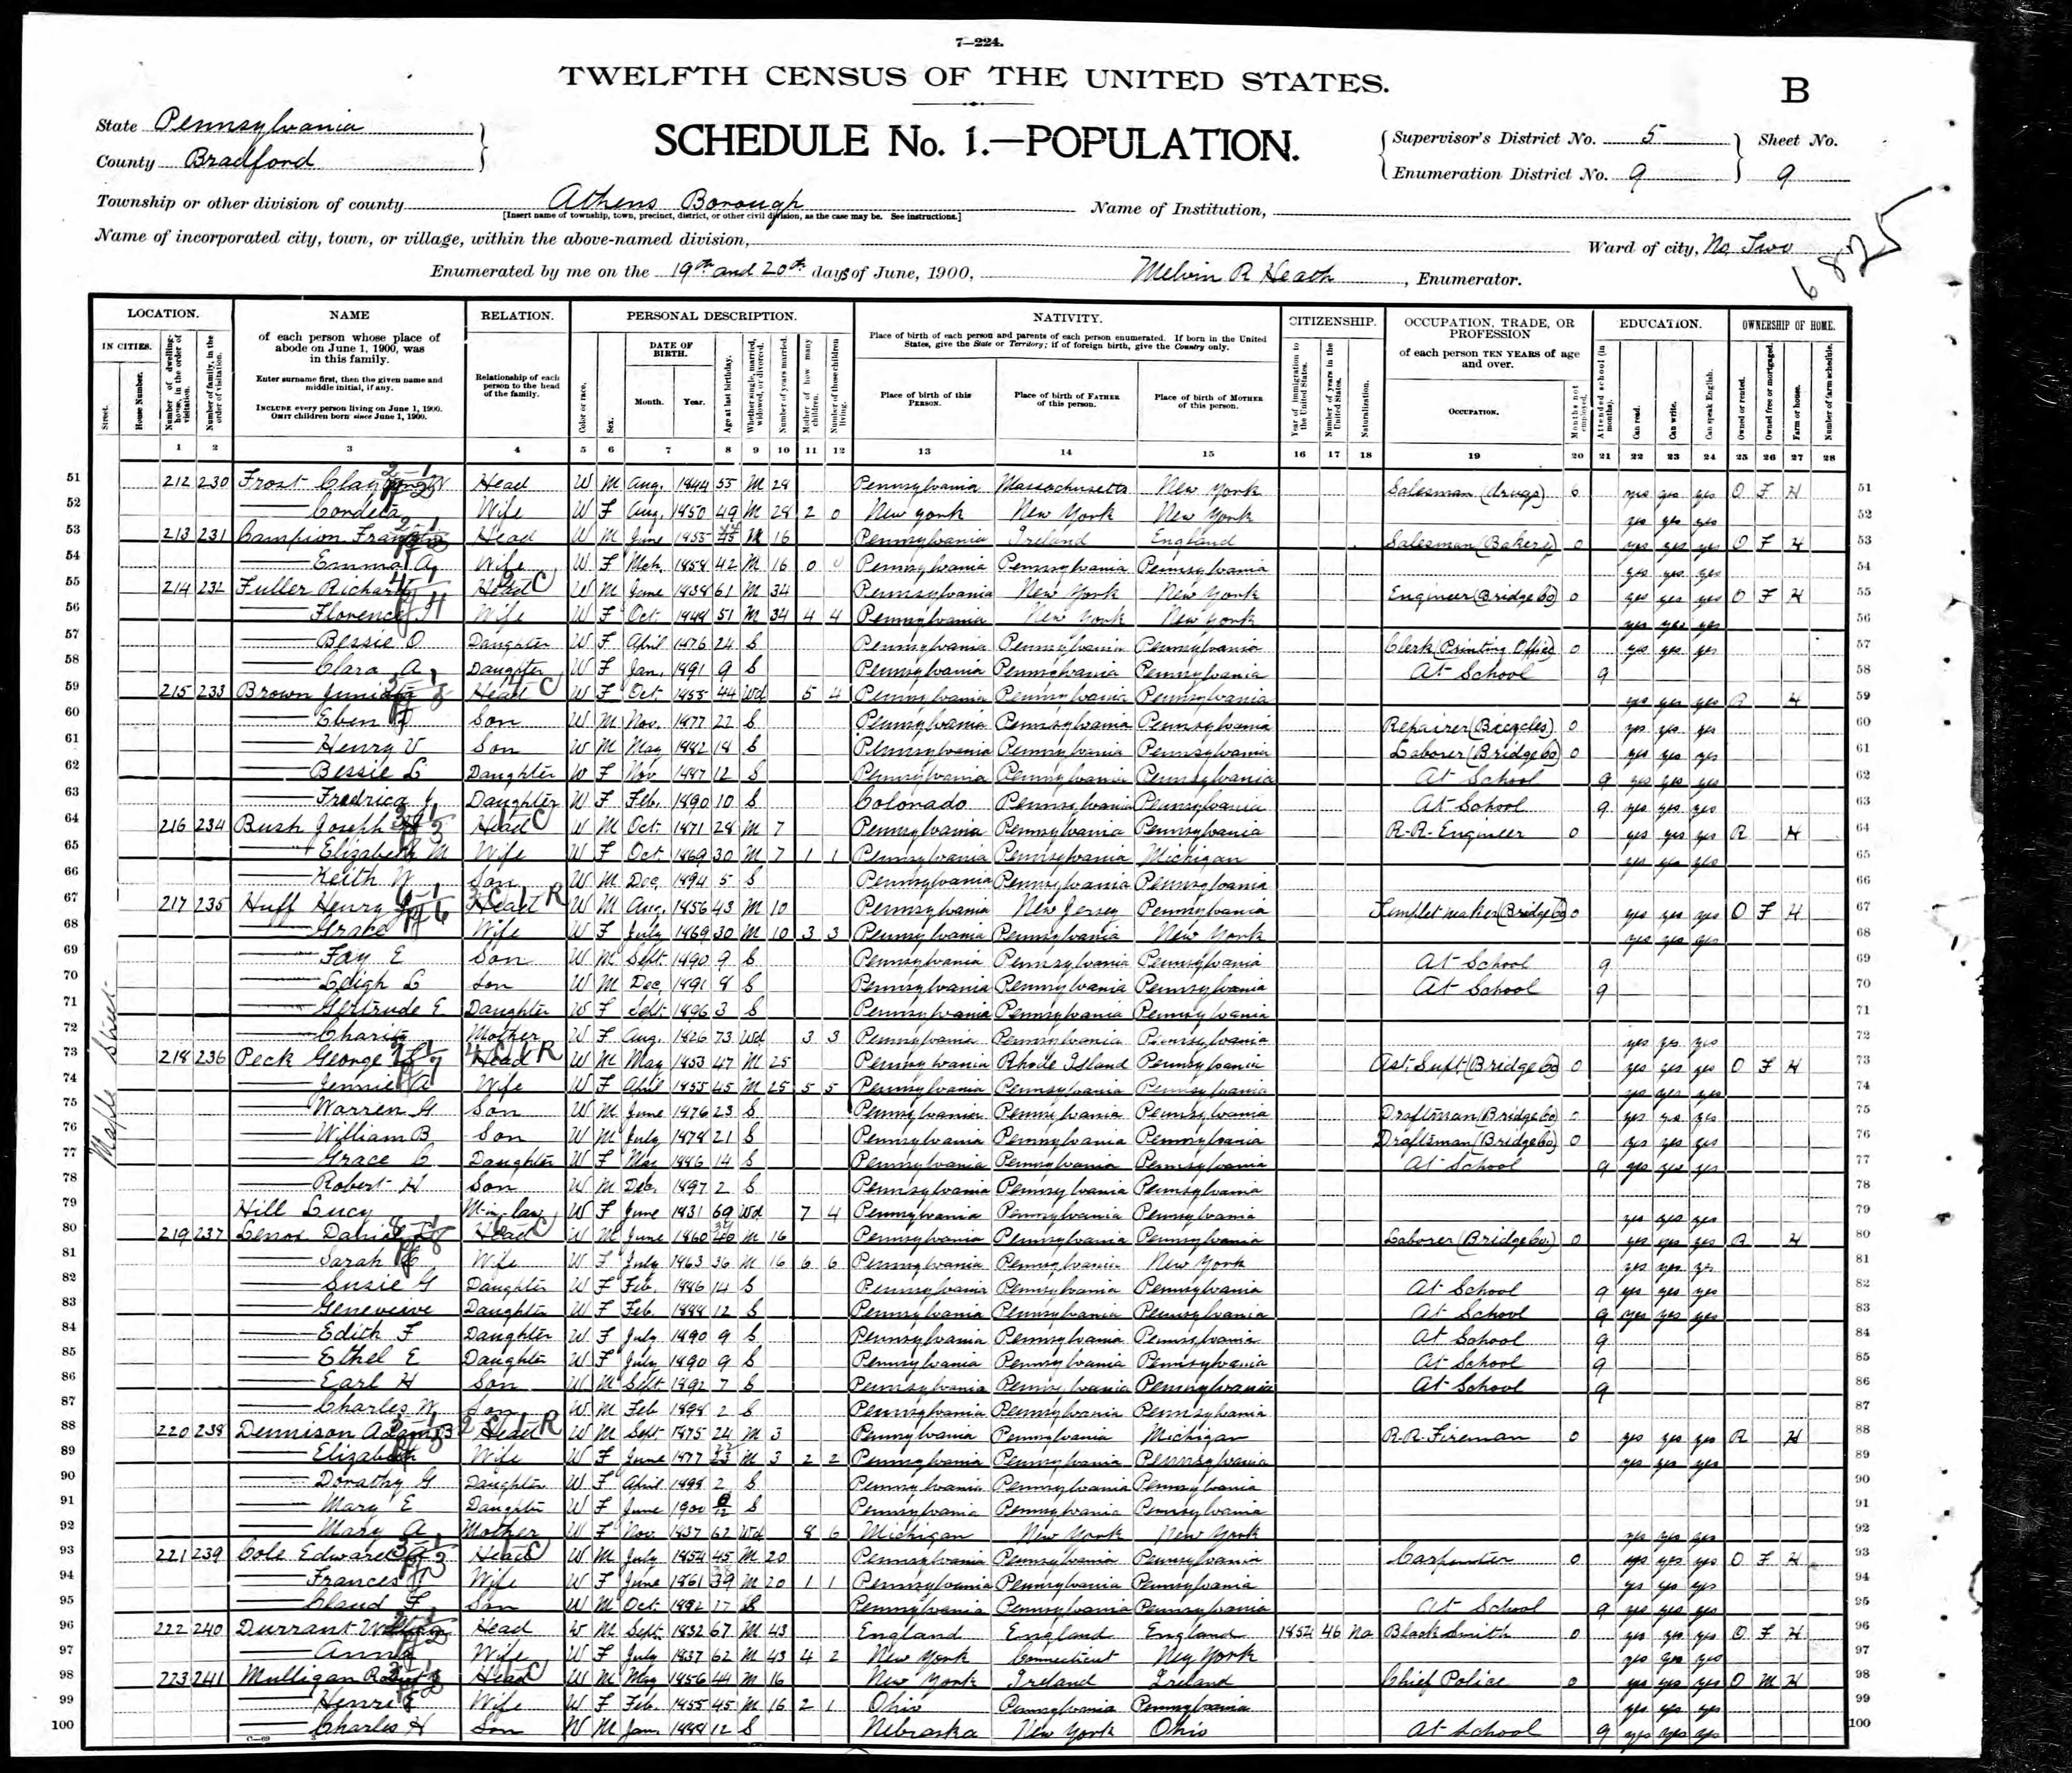 7—224.
TWELFTH CENSUS OF THE UNITED STATES.
B
State Pennsylvania
County Bradford
SCHEDULE No. 1.—POPULATION.
Supervisor's District No. 5
Enumeration District No. 9
Sheet No. 9
Township or other division of county Athens Borough
[Insert name of township, town, precinct, district, or other civil division, as the case may be. See instructions.]
Name of Institution,
Name of incorporated city, town, or village, within the above-named division,
Ward of city, No. Two
6825
Enumerated by me on the 19th and 20th days of June, 1900, Melvin R Heath, Enumerator.
LOCATION. NAME RELATION. PERSONAL DESCRIPTION. NATIVITY. CITIZENSHIP. OCCUPATION, TRADE, OR PROFESSION EDUCATION. OWNERSHIP OF HOME.
IN CITIES. Street. House Number. Number of dwelling-house, in the order of visitation. Number of family, in the order of visitation.
of each person whose place of abode on June 1, 1900, was in this family.
Enter surname first, then the given name and middle initial, if any.
INCLUDE every person living on June 1, 1900. OMIT children born since June 1, 1900.
Relationship of each person to the head of the family.
Color or race. Sex. DATE OF BIRTH. Month. Year. Age at last birthday. Whether single, married, widowed, or divorced. Number of years married. Mother of how many children. Number of these children living.
Place of birth of each person and parents of each person enumerated. If born in the United States, give the State or Territory; if of foreign birth, give the Country only.
Place of birth of this PERSON. Place of birth of FATHER of this person. Place of birth of MOTHER of this person.
Year of immigration to the United States. Number of years in the United States. Naturalization.
of each person TEN YEARS of age and over.
OCCUPATION. Months not employed.
Attended school (in months). Can read. Can write. Can speak English.
Owned or rented. Owned free or mortgaged. Farm or house. Number of farm schedule.
1 2 3 4 5 6 7 8 9 10 11 12 13 14 15 16 17 18 19 20 21 22 23 24 25 26 27 28
Maple Street
51 212 230 Frost Head W M Aug. 1844 55 M 28 Pennsylvania Massachusetts New York Salesman (drugs) 6 yes yes yes O F H 51
52 Cordelia Wife W F Aug. 1850 49 M 28 2 0 New York New York New York yes yes yes 52
53 213 231 Campion Head W M June 1855 M 16 Pennsylvania Ireland England Salesman (Bakery) 0 yes yes yes O F H 53
54 Emma A Wife W F Mch. 1858 42 M 16 0 Pennsylvania Pennsylvania Pennsylvania yes yes yes 54
55 214 232 Fuller Richard Head W M June 1838 61 M 34 Pennsylvania New York New York Engineer (Bridge Co) 0 yes yes yes O F H 55
56 Florence Wife W F Oct. 1848 51 M 34 4 4 Pennsylvania New York New York yes yes yes 56
57 Bessie O Daughter W F April 1876 24 S Pennsylvania Pennsylvania Pennsylvania Clerk (Printing Office) 0 yes yes yes 57
58 Clara A Daughter W F Jan. 1891 9 S Pennsylvania Pennsylvania Pennsylvania At School 9 58
59 215 233 Brown Head W F Oct 1855 44 Wd 5 4 Pennsylvania Pennsylvania Pennsylvania yes yes yes R H 59
60 Eben Son W M Nov. 1877 22 S Pennsylvania Pennsylvania Pennsylvania Repairer (Bicycles) 0 yes yes yes 60
61 Henry V Son W M May 1882 18 S Pennsylvania Pennsylvania Pennsylvania Laborer (Bridge Co) 0 yes yes yes 61
62 Bessie L Daughter W F Nov 1887 12 S Pennsylvania Pennsylvania Pennsylvania At School 9 yes yes yes 62
63 Fredrica J Daughter W F Feb. 1890 10 S Colorado Pennsylvania Pennsylvania At School 9 yes yes yes 63
64 216 234 Bush Joseph Head W M Oct. 1871 28 M 7 Pennsylvania Pennsylvania Pennsylvania R.R. Engineer 0 yes yes yes R H 64
65 Elizabeth M Wife W F Oct. 1869 30 M 7 1 1 Pennsylvania Pennsylvania Michigan yes yes yes 65
66 Keith W Son W M Dec. 1894 5 S Pennsylvania Pennsylvania Pennsylvania 66
67 217 235 Huff Henry Head W M Aug. 1856 43 M 10 Pennsylvania New Jersey Pennsylvania Templet maker (Bridge Co) 0 yes yes yes O F H 67
68 Grace Wife W F July 1869 30 M 10 3 3 Pennsylvania Pennsylvania New York yes yes yes 68
69 Fay E Son W M Sept. 1890 9 S Pennsylvania Pennsylvania Pennsylvania At School 9 69
70 Leigh L Son W M Dec. 1891 8 S Pennsylvania Pennsylvania Pennsylvania At School 9 70
71 Gertrude E Daughter W F Sept. 1896 3 S Pennsylvania Pennsylvania Pennsylvania 71
72 Charity Mother W F Aug. 1826 73 Wd 3 3 Pennsylvania Pennsylvania Pennsylvania yes yes yes 72
73 218 236 Peck George Head W M May 1853 47 M 25 Pennsylvania Rhode Island Pennsylvania Ast. Supt (Bridge Co) 0 yes yes yes O F H 73
74 Jennie A Wife W F April 1855 45 M 25 5 5 Pennsylvania Pennsylvania Pennsylvania yes yes yes 74
75 Warren G Son W M June 1876 23 S Pennsylvania Pennsylvania Pennsylvania Draftsman (Bridge Co) 0 yes yes yes 75
76 William B Son W M July 1878 21 S Pennsylvania Pennsylvania Pennsylvania Draftsman (Bridge Co) 0 yes yes yes 76
77 Grace C Daughter W F Mar 1886 14 S Pennsylvania Pennsylvania Pennsylvania At School 9 yes yes yes 77
78 Robert H Son W M Dec. 1897 2 S Pennsylvania Pennsylvania Pennsylvania 78
79 Hill Lucy M-in-law W F June 1831 69 Wd 7 4 Pennsylvania Pennsylvania Pennsylvania yes yes yes 79
80 219 237 Lenox Daniel Head W M June 1860 M 16 Pennsylvania Pennsylvania Pennsylvania Laborer (Bridge Co.) 0 yes yes yes R H 80
81 Sarah Wife W F July 1863 36 M 16 6 6 Pennsylvania Pennsylvania New York yes yes yes 81
82 Susie G Daughter W F Feb. 1886 14 S Pennsylvania Pennsylvania Pennsylvania At School 9 yes yes yes 82
83 Genevieve Daughter W F Feb. 1888 12 S Pennsylvania Pennsylvania Pennsylvania At School 9 yes yes yes 83
84 Edith F Daughter W F July 1890 9 S Pennsylvania Pennsylvania Pennsylvania At School 9 84
85 Ethel E Daughter W F July 1890 9 S Pennsylvania Pennsylvania Pennsylvania At School 9 85
86 Earl H Son W M Sept 1892 7 S Pennsylvania Pennsylvania Pennsylvania At School 9 86
87 Charles W Son W M Feb 1898 2 S Pennsylvania Pennsylvania Pennsylvania 87
88 220 238 Dennison Adam B Head W M Sept 1875 24 M 3 Pennsylvania Pennsylvania Michigan R.R. Fireman 0 yes yes yes R H 88
89 Elizabeth Wife W F June 1877 M 3 2 2 Pennsylvania Pennsylvania Pennsylvania yes yes yes 89
90 Dorathy G Daughter W F April 1898 2 S Pennsylvania Pennsylvania Pennsylvania 90
91 Mary E Daughter W F June 1900 0/12 S Pennsylvania Pennsylvania Pennsylvania 91
92 Mary A Mother W F Nov. 1837 62 Wd 8 6 Michigan New York New York yes yes yes 92
93 221 239 Cole Edward Head W M July 1854 45 M 20 Pennsylvania Pennsylvania Pennsylvania Carpenter 0 yes yes yes O F H 93
94 Frances Wife W F June 1861 39 M 20 1 1 Pennsylvania Pennsylvania Pennsylvania yes yes yes 94
95 Claud F Son W M Oct. 1882 17 S Pennsylvania Pennsylvania Pennsylvania At School 9 yes yes yes 95
96 222 240 Durrant Head W M Sept. 1832 67 M 43 England England England 1854 46 Na Black Smith 0 yes yes yes O F H 96
97 Anna Wife W F July 1837 62 M 43 4 2 New York Connecticut New York yes yes yes 97
98 223 241 Mulligan Robert Head W M May 1856 44 M 16 New York Ireland Ireland Chief Police 0 yes yes yes O M H 98
99 Henri E Wife W F Feb. 1855 45 M 16 2 1 Ohio Pennsylvania Pennsylvania yes yes yes 99
100 Charles H Son W M Jan. 1888 12 S Nebraska New York Ohio At School 9 yes yes yes 100